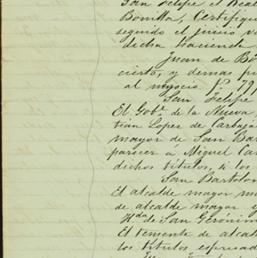 San Felipe el Real
Bonilla, Certifiqu
seguido el juicio v
dicha hacienda
Juan de B
cierto, y demas p
al negocio,
San Felipe
El Gobr. de la Nueva,
tián Lopez de Carbaja
mayor de San Bar
parecer á Miguel Ca
dichos títulos, si los
San Bartolo
El alcalde mayor m
de alcalde mayor y
Hda de San Gerónim
El teniente de alcal
los títulos espresad